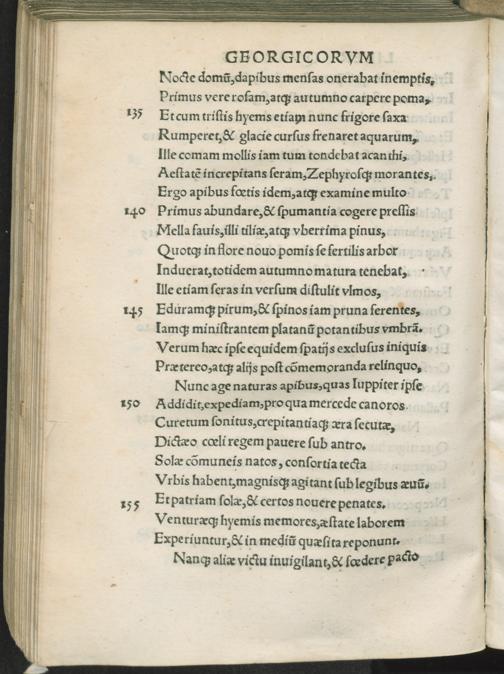 GEORGICORVM
Nocte domũ, dapibus mensas onerabat inemptis,
Primus vere rosam, atq; autumno carpere poma,
135 Et cum tristis hyemis etiam nunc frigore saxa
Rumperet, & glacie cursus frenaret aquarum,
Ille comam mollis iam tum tondebat acanthi,
Aestatẽ increpitans seram, Zephyrosq; morantes,
Ergo apibus fœtis idem, atq; examine multo
140 Primus abundare, & spumantia cogere pressis
Mella fauis, illi tiliæ, atq; vberrima pinus,
Quotq; in flore nouo pomis se fertilis arbor
Induerat, totidem autumno matura tenebat,
Ille etiam seras in versum distulit vlmos,
145 Eduramq; pirum, & spinos iam pruna ferentes,
Iamq; ministrantem platanũ potantibus vmbrã.
Verum hæc ipse equidem spatijs exclusus iniquis
Prætereo, atq; alijs post cõmemoranda relinquo,
Nunc age naturas apibus, quas Iuppiter ipse
150 Addidit, expediam, pro qua mercede canoros
Curetum sonitus, crepitantiaq; æra secutæ,
Dictæo cœli regem pauere sub antro.
Solæ cõmuneis natos, consortia tecta
Vrbis habent, magnisq; agitant sub legibus æuũ.
155 Et patriam solæ, & certos nouere penates.
Venturæq; hyemis memores, æstate laborem
Experiuntur, & in mediũ quæsita reponunt.
Nanq; aliæ victu inuigilant, & fœdere pacto